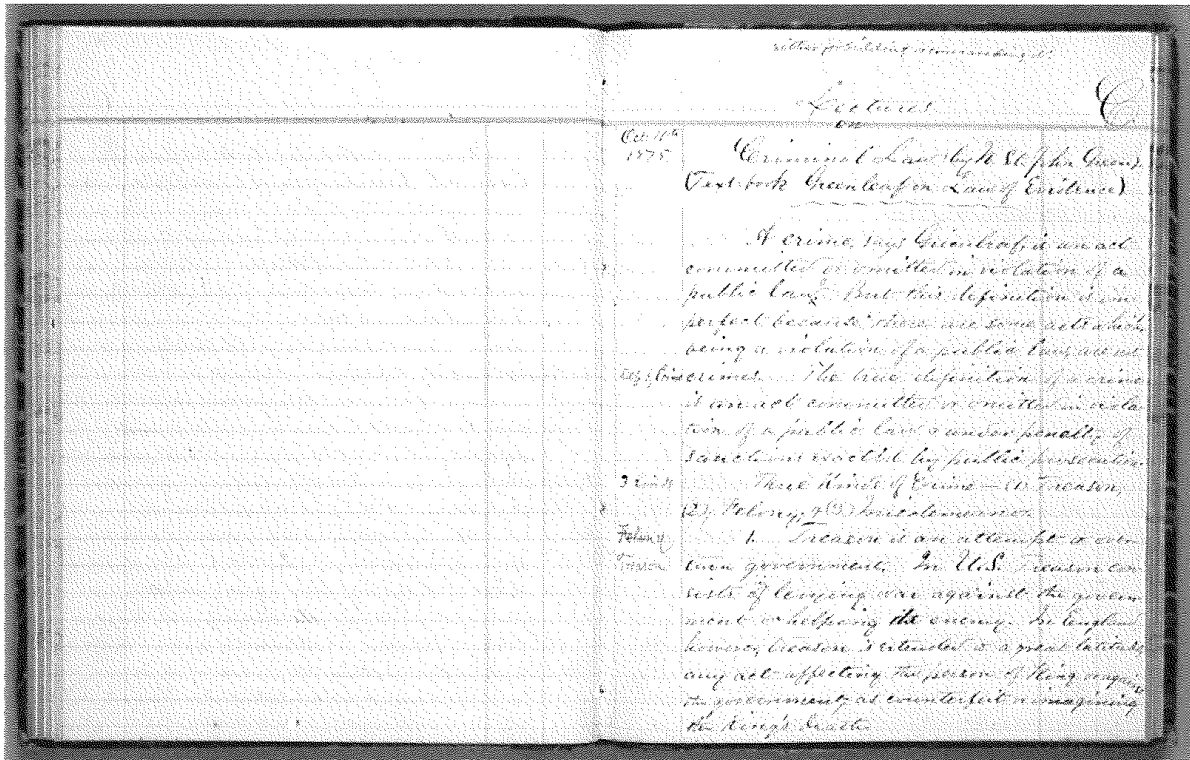 C
Lectures
on
Oct 11th
1875
Criminal Law by N St John Green,
(Text-book Greenleaf on Law of Evidence)
A crime, says Greenleaf, is an act
committed or omitted in violation of a
public law. But this definition is im
perfect because there are some acts which
being a violation of a public law, are not
crimes. The true definition of a crime
is an act committed or omitted in viola
tion of a public law & under penalty of
sanctions by public prosecution
3 kinds
Three Kinds of Crime — (1) Treason,
(2) Felony, & (3) misdemeanor
Felony
Treason
1. Treason is an attempt to over
turn government. In U.S. Treason con
sists of levying war against the govern
ment or helping its enemy. In England
however, treason is extended to a great latitude
any act affecting the person of King or
the government, as counterfeit or imagining
the King's death